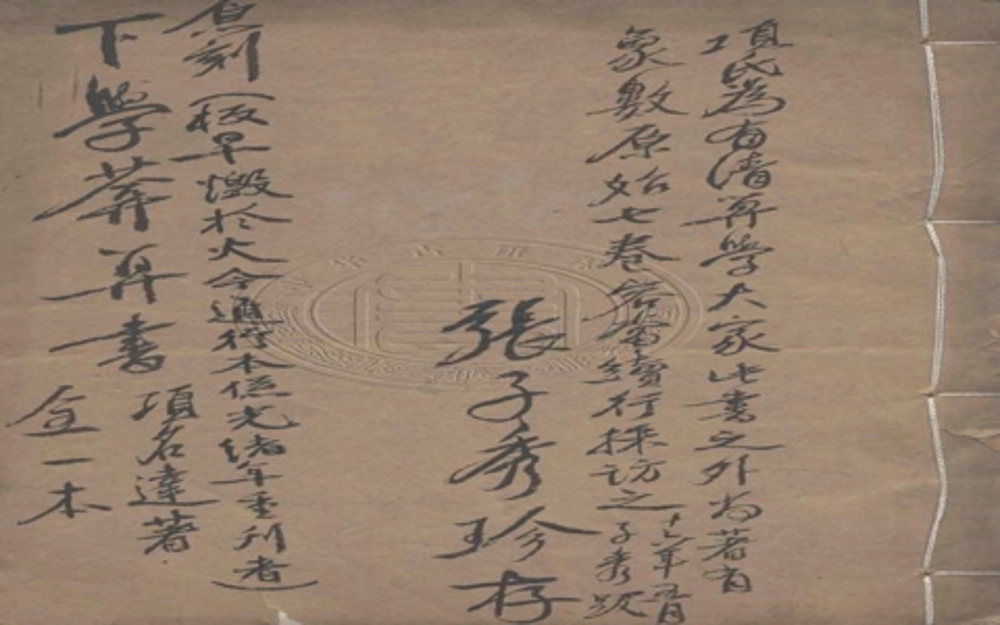 項氏為有清算學大家此書之外尚著有
象數原始七卷当需續行採訪之
十六年五月
子秀題
張子秀珍存
原刻(板早燬於火今通行本係光緒年重刊者)
下學葊算書
項名達著
全一本